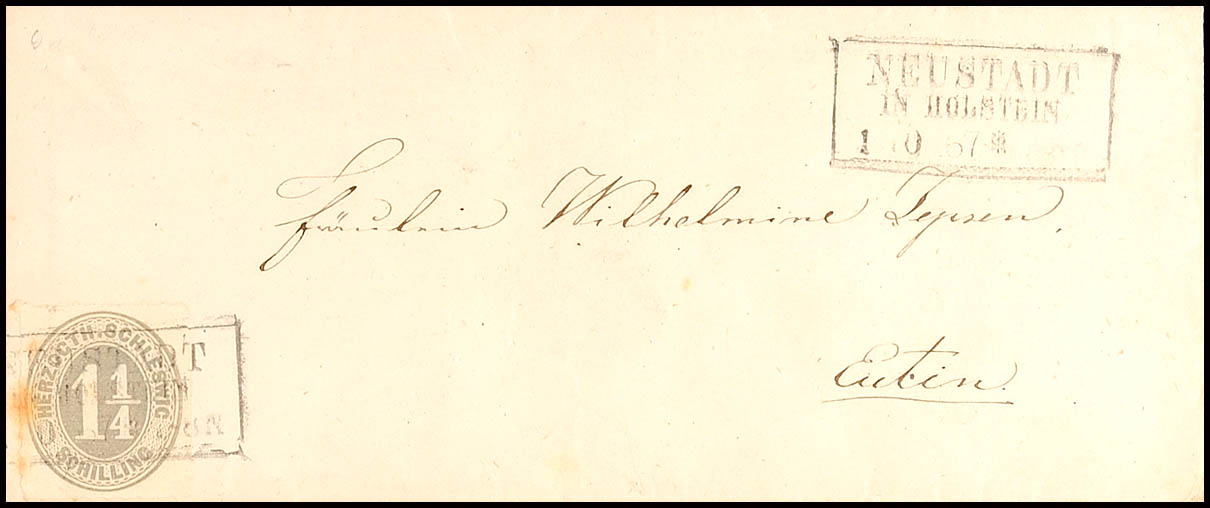 NEUSTADT
IN HOLSTEIN
1 10 67 *
Fräulein Wilhelmine Jepsen.
Eutin.
HERZOGTH. SCHLESWIG
1 1/4
SCHILLING